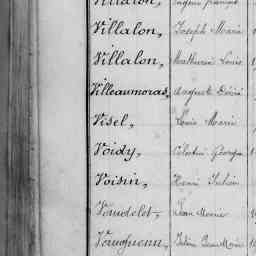 Villalon,
Villalon, Joseph Marie
Villalon, Mathurin Louis
Villeaumoras, Auguste Désiré
Visel, Louis Marie
Voidy, Célestin Georges
Voisin, Henri Julien
Voudelet, Jean Marie
Julien Jean Marie